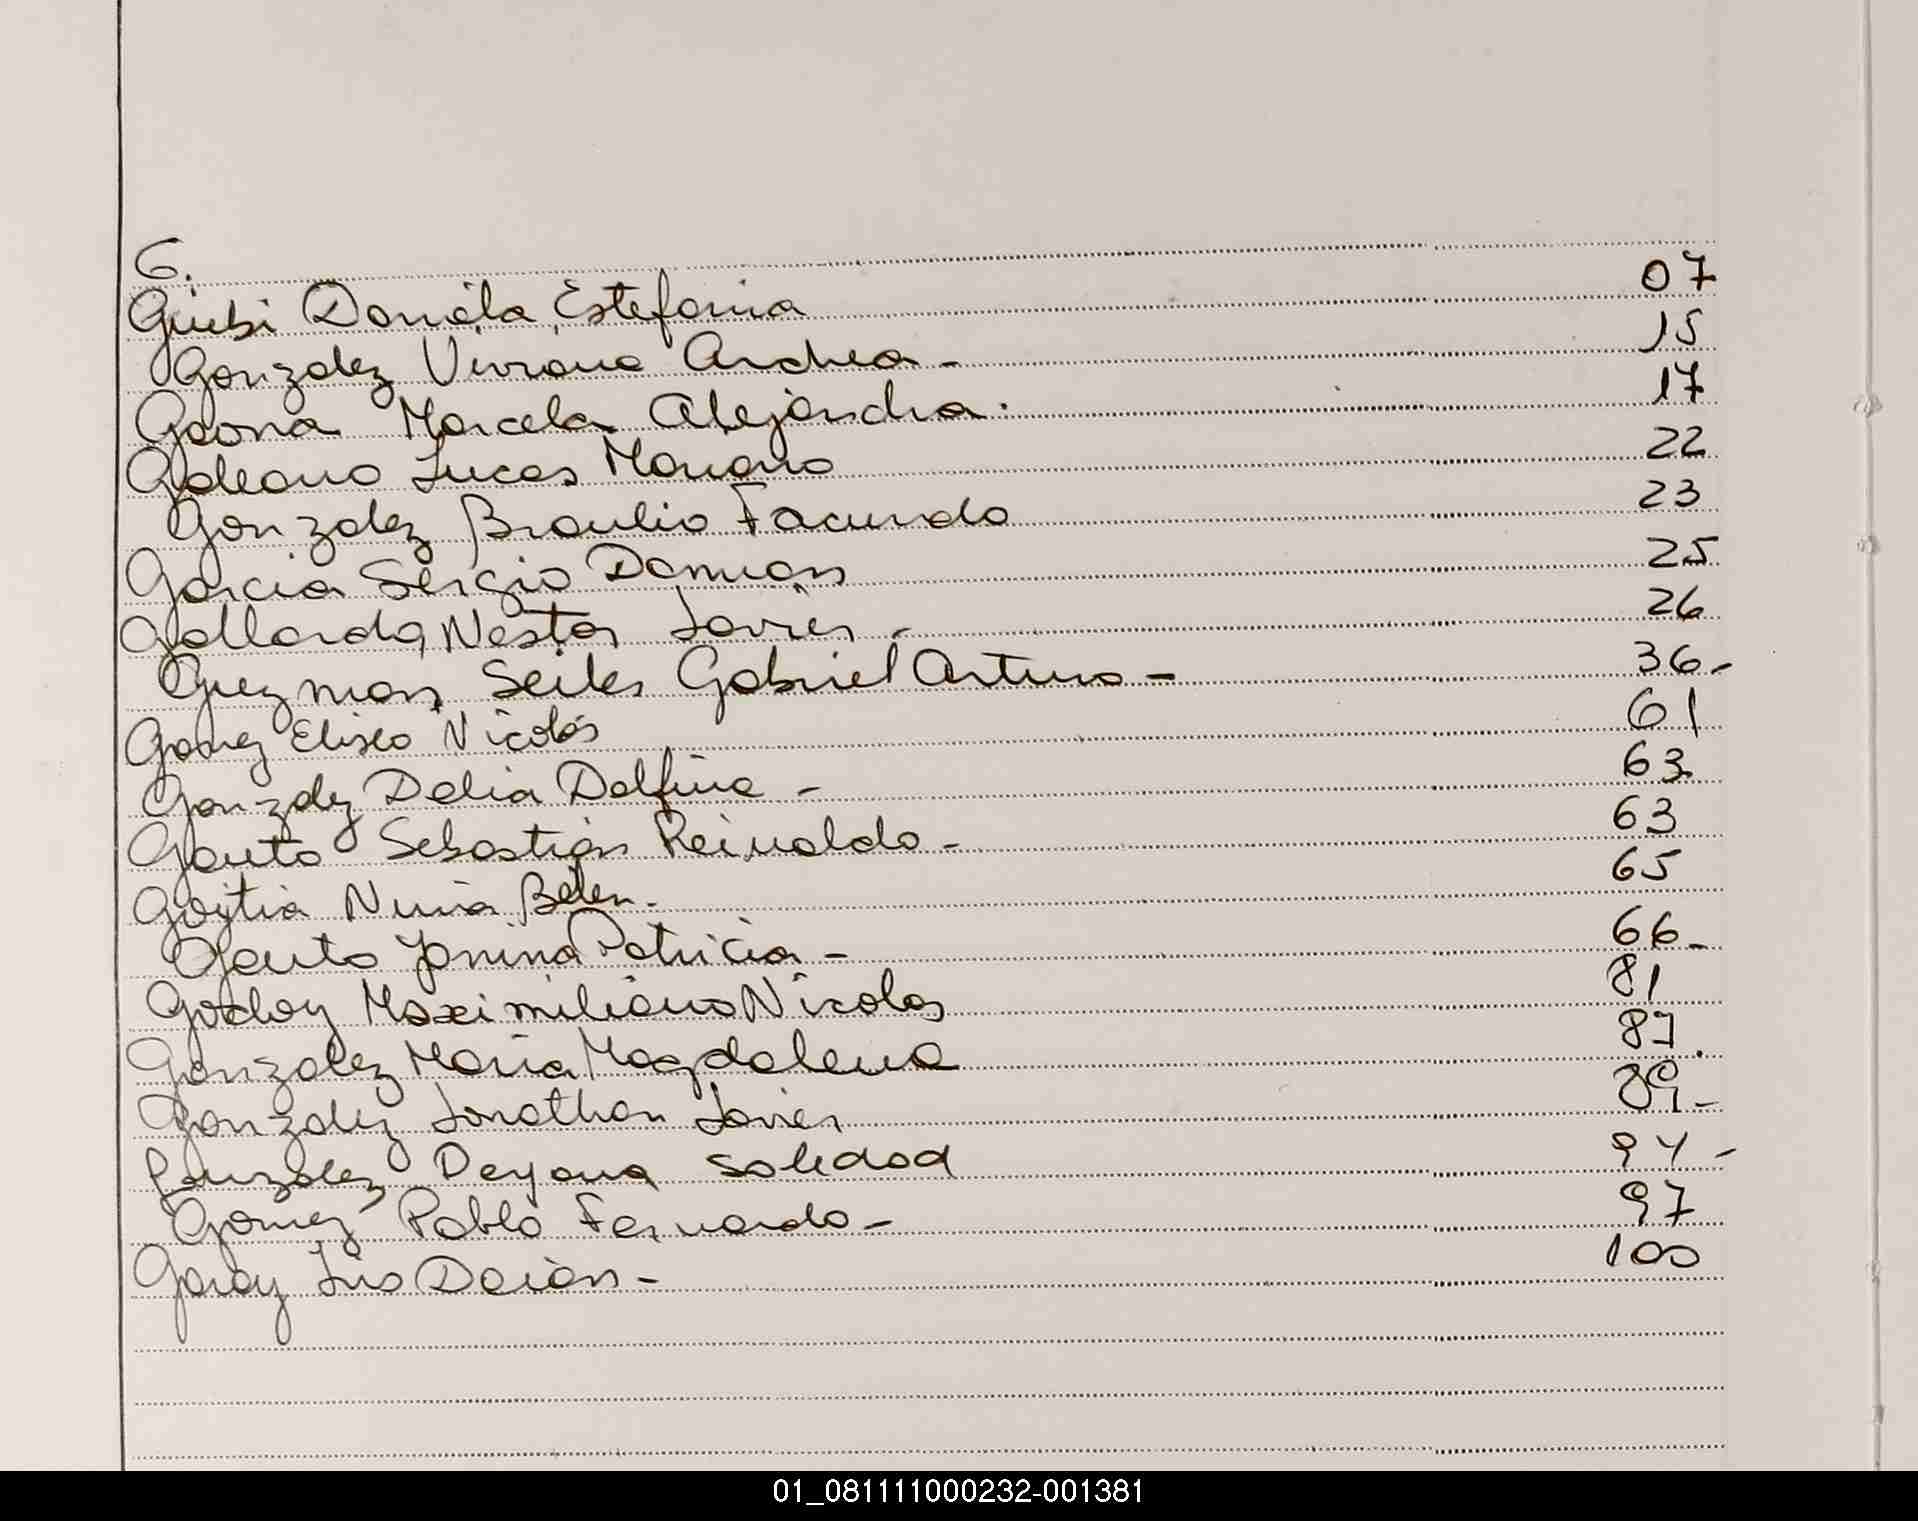 G.
Giubi Daniela Estefania 07
Gonzalez Viviana Andrea - 15
Gaona Marcela Alejandra. 17
Galeano Lucas Mariano 22
Gonzalez Braulio Facundo 23
Garcia Sergio Damian 25
Gallardo, Nestor Javier - 26
Guzman Seiles Gabriel Arturo - 36-
Gomez Eliseo Nicolás 61
Gonzalez Delia Delfina - 63
Gauto Sebastián Reinaldo - 63
Goytia Nuria Belen. 65
Gauto Yanina Patricia - 66-
Godoy Maximiliano Nicolas 81
Gonzalez Maria Magdalena 87.
Gonzalez Jonathan Javier 89-
Gonzalez Deyana Soledad 94 -
Gomez Pablo Fernando - 97
Garay Luis Darian - 100
01_081111000232-001381